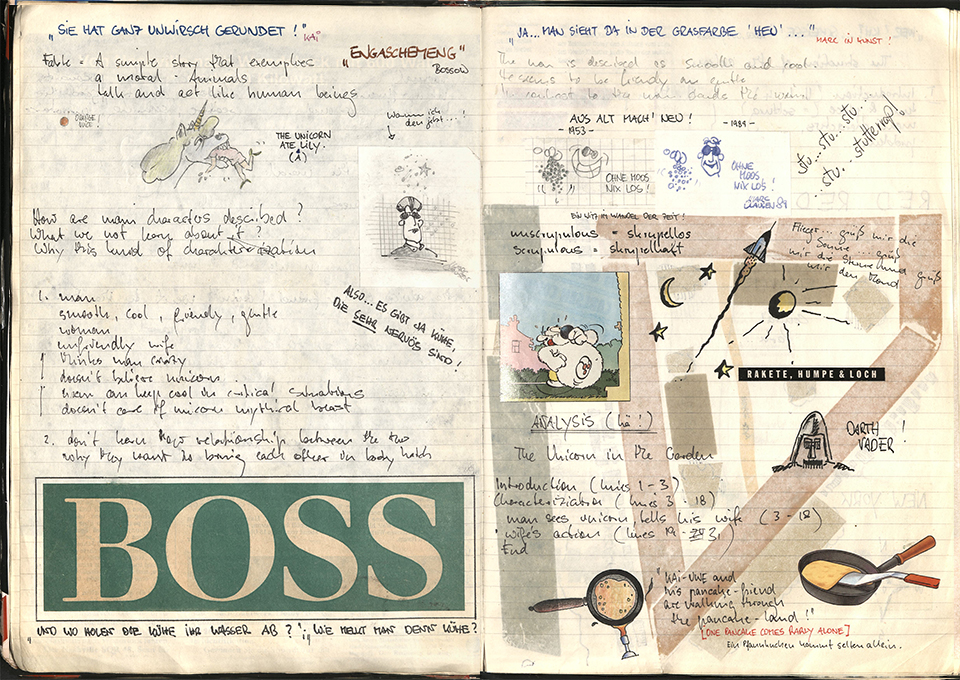 „SIE HAT GANZ UNWIRSCH GERUNDET!" KAI
„ENGASCHEMENG"
BOSSOW
Fable = A simple story that exemplives
a moral - Animals
talk and act like human beings
Warum ich
denn jetzt...!
THE UNICORN
ATE LILY.
(A)
How are main characters described?
What we not learn about it?
Why this kind of characterization
ALSO... ES GIBT JA KÜHE,
DIE SEHR NERVÖS SIND!
1. man
smooth, cool, friendly, gentle
woman
unfriendly wife
thinks man crazy
doesn't believe unicorn
man can keep cool in critical situations
doesn't care of unicorn mythical beast
2. don't learn relationship between the two
why they want to bring each other in body hatch
BOSS
„UND WO HOLEN DIE KÜHE IHR WASSER AB?" „WIE MELKT MAN DENN KÜHE?
„JA... MAN SIEHT DA IN DER GRASFARBE 'HEU'...."
MARC IN KUNST!
The man is described as smooth and cool.
He seems to be friendly an gentle
In contrast to the man stands the
AUS ALT MACH' NEU!
- 1953 -
- 1989 -
OHNE MOOS
NIX LOS!
OHNE
MOOS
NIX LOS!
stu...stu...stu...
...stu... stotternop!
EIN WITZ IM WANDEL DER ZEIT!
unscrupulous = skrupellos
scrupulous = skrupelhaft
Flieger... grüß mir die
Sonne grüß
mir die Sterne und grüß
mir den Mond
RAKETE, HUMPE & LOCH
ANALYSIS (hä!)
DARTH
VADER!
The Unicorn in the Garden
Introduction (lines 1-3)
Characterization (lines 3-18)
man sees unicorn, tells his wife (3-18)
wife's action (lines 19 -
End
"KAI-UWE and
his pancake-friend
are walking through
the pancake-land!!"
[ONE PANCAKE COMES RARLY ALONE]
Ein Pfannkuchen kommt selten allein.